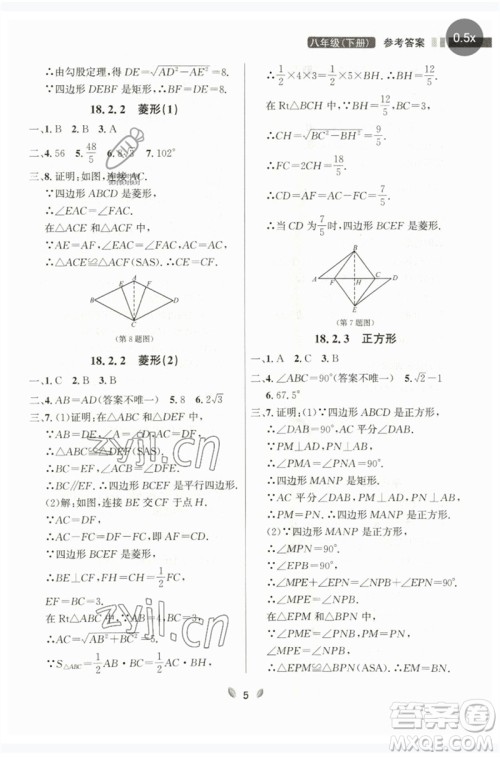 八年级(下册) 参考答案
0.5x
∴由勾股定理,得DE=√AD²-AE²=8.
∵四边形DEBF是矩形,∴BF=DE=8.
18.2.2 菱形(1)
一、1. B 2. B 3. C
二、4. 56 5. 48/5 6. 8√3 7. 102°
三、8. 证明:如图,连接AC.
∵四边形ABCD是菱形,
∴∠EAC=∠FAC.
在△ACE和△ACF中,
∵AE=AF,∠EAC=∠FAC,AC=AC,
∴△ACE≌△ACF(SAS). ∴CE=CF.
A E F D B C
(第8题图)
18.2.2 菱形(2)
一、1. B 2. D 3. A
二、4. AB=AD(答案不唯一) 5. 8 6. 2√3
三、7. (1)证明:在△ABC与△DEF中,
∵AB=DE,∠A=∠D,AC=DF,
∴△ABC≌△DEF(SAS).
∴BC=EF,∠ACB=∠DFE.
∴BC∥EF. ∴四边形BCEF是平行四边形.
(2)解:如图,连接BE交CF于点H.
∵AC=DF,
∴AF=CD.
∵四边形BCEF是菱形,
∴BE⊥CF,BH=EH,FH=CH=1/2CF,
EF=BC=3.
在Rt△ABC中,
AC=√AB²+BC²=5.
∵S△ABC=1/2AB·BC=1/2AC·BH,
∴1/2×4×3=1/2×5×BH. ∴BH=12/5.
在Rt△BCH中,
∴CH=√BC²-BH²=9/5.
∴FC=2CH=18/5.
∴AF=CD=7/5.
∴当CD为7/5时,四边形BCEF是菱形.
B A F H C D E
(第7题图)
18.2.3 正方形
一、1. A 2. C 3. B
二、4. ∠ABC=90°(答案不唯一) 5. √2-1
6. 67.5°
三、7. 证明:(1)∵四边形ABCD是正方形,
∴∠DAB=90°,AC平分∠DAB.
∵PM⊥AD,PN⊥AB,
∴∠PMA=∠PNA=90°.
∴四边形MANP是矩形.
∵AC平分∠DAB,PM⊥AD,PN⊥AB,
∴PM=PN. ∴四边形MANP是正方形.
(2)∵四边形MANP是正方形,
∴PM=PN,∠MPN=90°.
∵∠EPN=90°,
∴∠MPE+∠EPN=∠NPF+∠EPN=90°.
∴∠MPE=∠NPF.
在△EPM和△FPN中,
∵∠PME=∠PNF,PM=PN,
∠MPE=∠NPF,
∴△EPM≌△FPN(ASA). ∴EM=FN.
5
zyjl.cn
zyjl.cn
答案圈
MXQE.COM